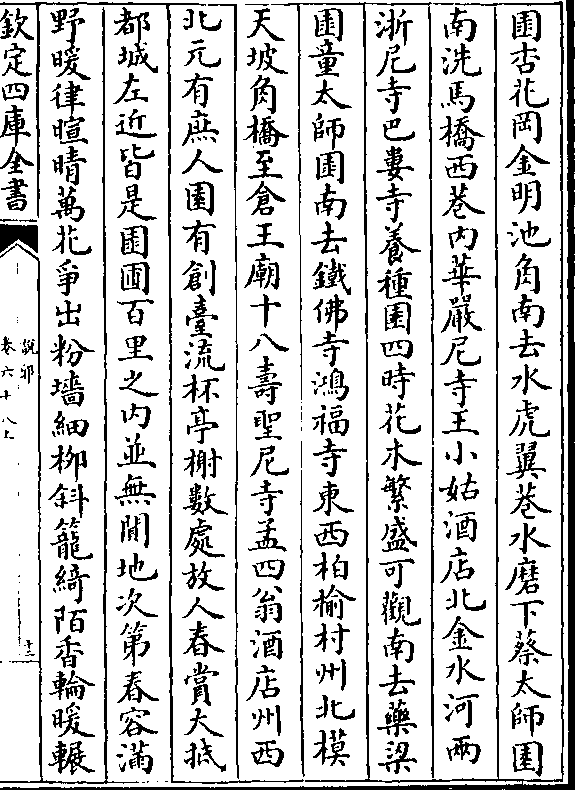 園杏花岡金明池角南去水虎翼巷水磨下蔡太師園
南洗馬橋西巷内華嚴尼寺王小姑酒店北金水河兩
浙尼寺巴婁寺養種園四時花木繁盛可觀南去藥梁
園童太師園南去鐵佛寺鴻福寺東西柏榆村州北模
天坡角橋至倉王廟十八壽聖尼寺孟四翁酒店州西
北元有庶人園有創臺流杯亭榭數處放人春賞大抵
都城左近皆是園圃百里之内並無閒地次第春容滿
野暖律暄晴萬花爭出粉墻細柳斜籠綺陌香輪暖輾
欽定四庫全書
說郛
卷六十八上
十三